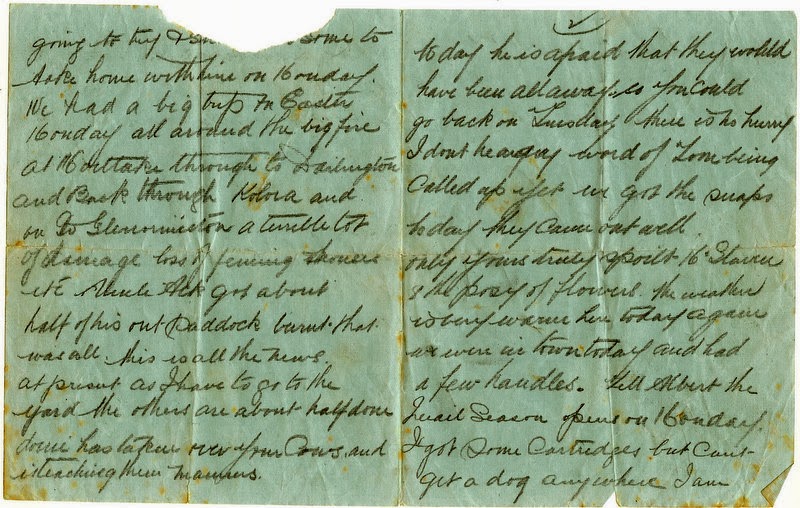 going to try & some to
take home with him on Monday.
We had a big trip on Easter
Monday all around the big fire
at Mortlake through to Darlington
and Back through Kolora and
on to Glenormiston a terrible lot
of damage loss of fencing
etc Uncle Ack got about
half of his out Paddock burnt that
was all. this is all the news
at present as I have to go to the
yard the others are about half done
has taken over your Cows, and
is teaching them manners.
today he is afraid that they would
have been all away so you could
go back on Tuesday there is no hurry
I dont hear any word of Tom being
Called up yet we got the snaps
today they came out well
only yours truly spoilt
& the posy of flowers the weather
is very warm here today again
we were in town today and had
a few handles. tell Albert the
Quail Season opens on Monday.
I got some Cartridges but Cant
get a dog anywhere I am